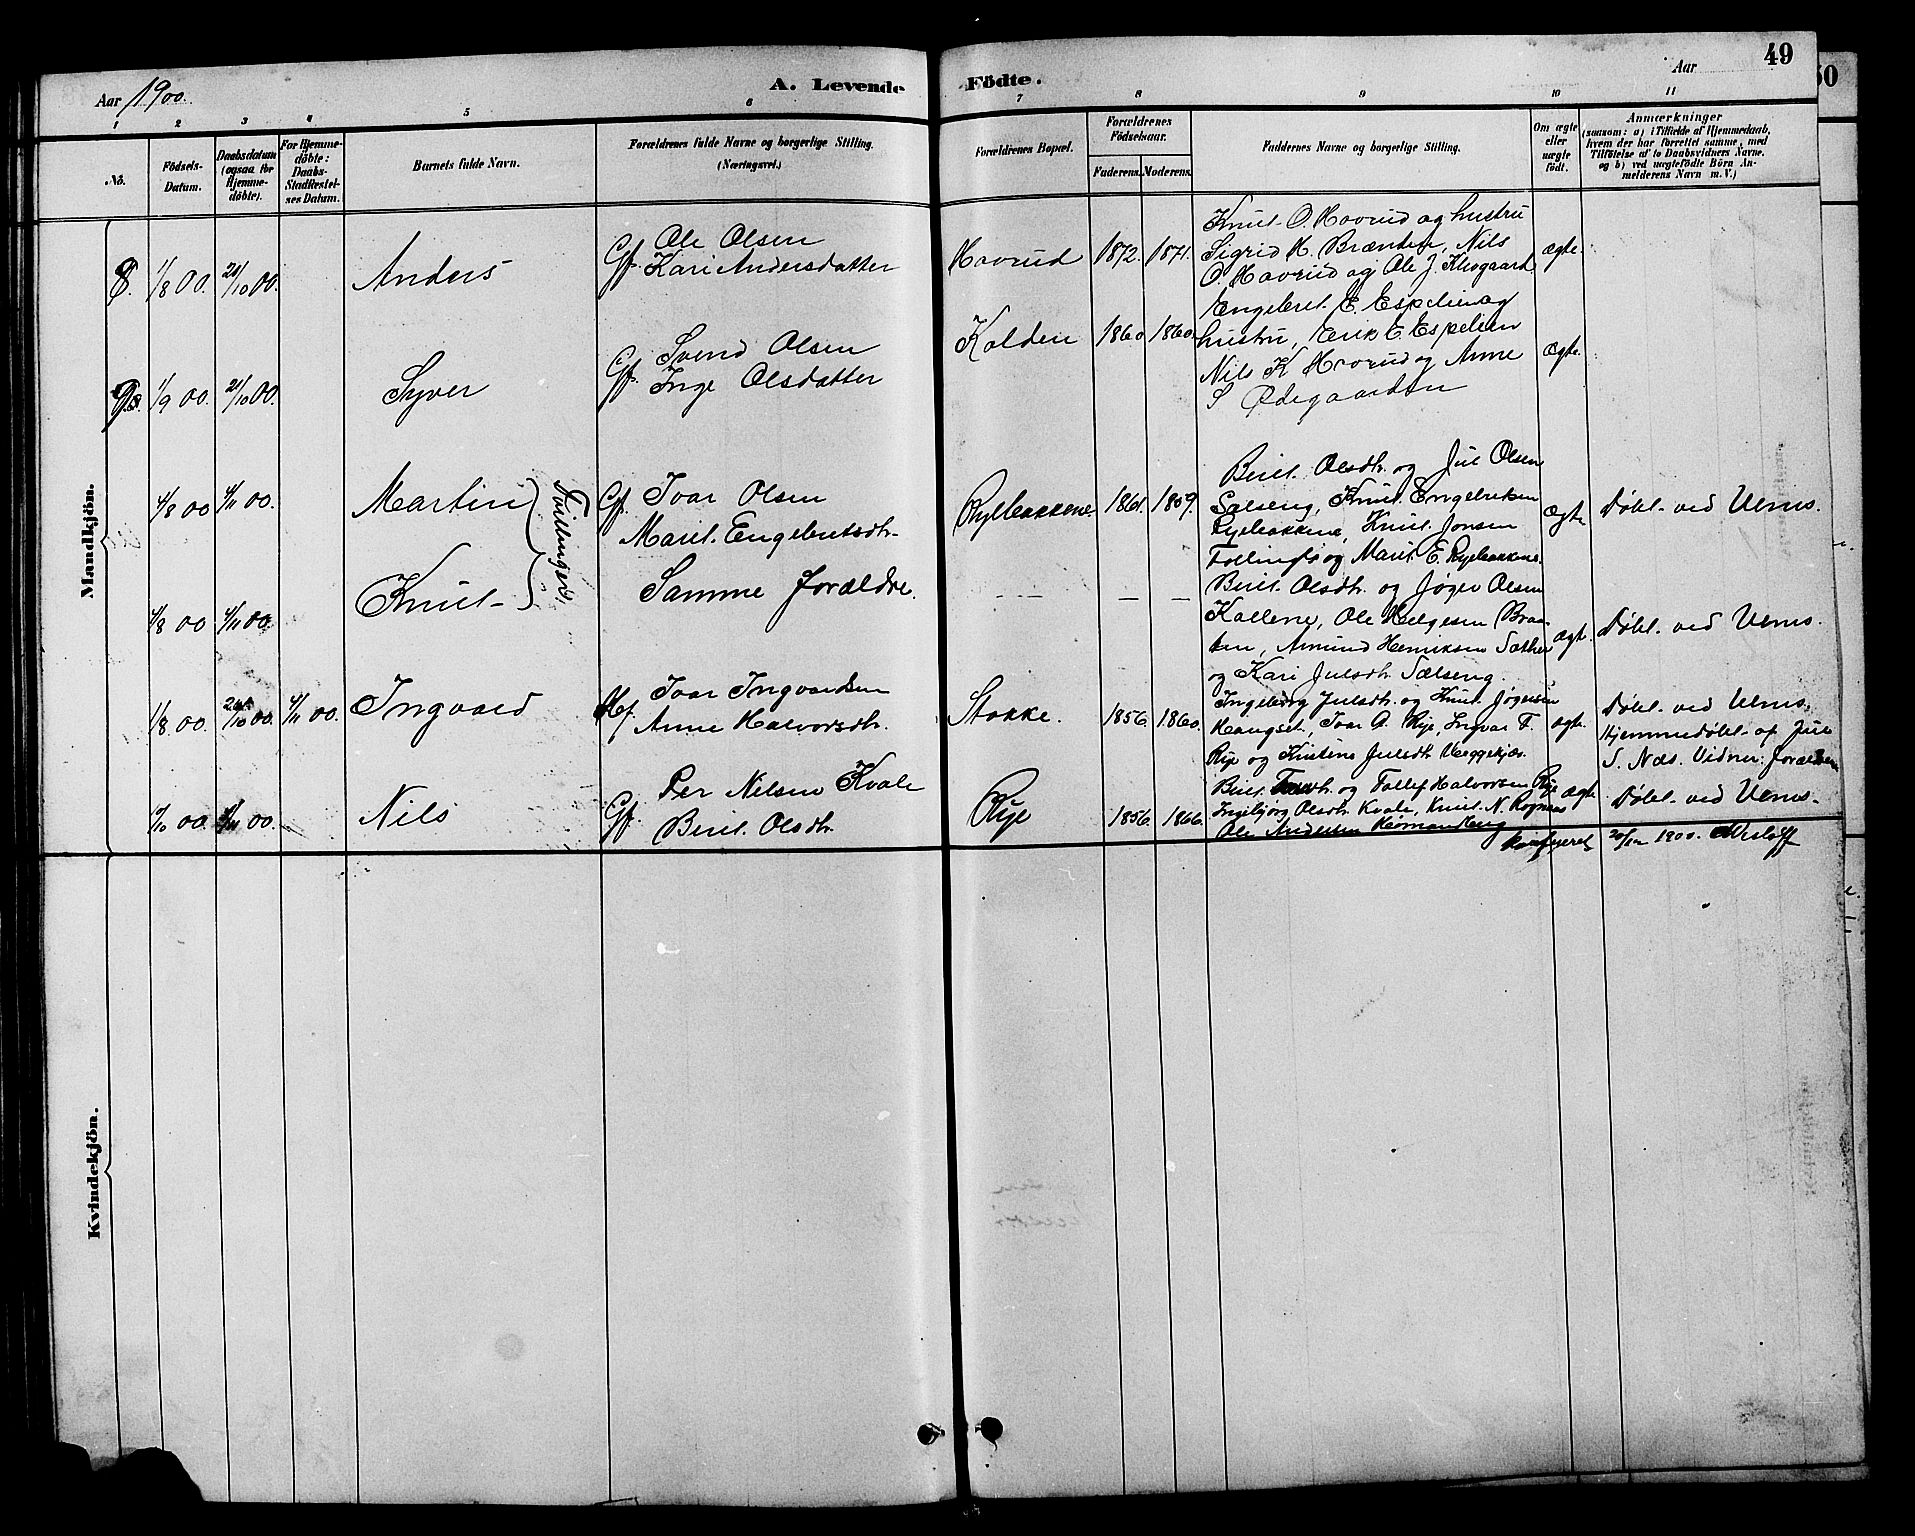 Aar 1900.
A. Levende Födte.
Aar
49
50
1 2 3 4 5 6 7 8 9 10 11
No.
Födsels-Datum.
Daabsdatum (ogsaa for Hjemmedöbte).
For Hjemmedöbte: Daabs-Stadfæstelses Datum.
Barnets fulde Navn.
Forældrenes fulde Navne og borgerlige Stilling. (Næringsvei.)
Forældrenes Bopæl.
Forældrenes Födselsaar.
Faderens. Moderens.
Faddernes Navne og borgerlige Stilling.
Om ægte eller uægte födt.
Anmærkninger (saasom: a) i Tilfælde af Hjemmedaab, hvem der har forrettet samme, med Tilföielse af to Daabsvidners Navne, og b) ved uægtefödte Börn Anmelderens Navn m. V.)
Mandkjön.
8. 1/8 00. 21/10 00. Anders Gf. Ole Olsen
Kari Andersdatter
Hovrud 1872. 1871.
Knut O. Hovrud og hustru
Sigrid H. Brænden, Nils
O. Hovrud og Ole J.
ægte.
9. 1/9 00. 21/10 00. Syver Gf. Svend Olsen
Inge Olsdatter
Kolden 1860 1860.
Engebret E. Espelien og
hustru, Erik E. Espelien
Nils K Hovrud og Anne
S Ødegaarden
ægte.
4/8 00 4/11 00. Martin Gf. Ivar Olsen
Marit Engebretsdtr.
Tvillinger
Ryebakkene 1861. 1859.
Birit Olsdtr. og Jul Olsen
Sælseng, Knut Engebretsen
Ryebakkene, Knut Jonsen
og Marit E. Ryebakkene.
ægte Døbt ved Ulnes.
4/8 00 4/11 00. Knut Samme forældre.
— — —
Birit Olsdtr. og Jøger Olsen
Kallene, Ole Helgesen
Amund Henriksen Sæther
og Kari Julsdtr Sælseng.
ægt. Døbt ved Ulnes.
1/8 00. 10 00. 4/11 00. Ingvard Hf. Ivar Ingvardsen
Anne Halvorsdtr.
Stokke. 1856. 1860.
Ingeborg Julsdtr. og Knut Jøgersen
Haugset, Ivar G. Rye, Ingvar T.
Rye og Kristine Julsdtr
ægte. Døbt ved Ulnes.
Hjemmedøbt af Jul
S. Næs. Vidner: forældrene
10 00 4/11 00. Nils Gf. Per Nilsen Kvale
Birit Olsdtr.
Rye 1856. 1866.
Birit og Tollef Halvorsen Rye
Ingebjørg Olsdtr Kvale, Knut N. Rognaas
Ole Andersen
ægte Døbt ved Ulnes.
Konfereret 20/12 1900.
Kvindekjön.